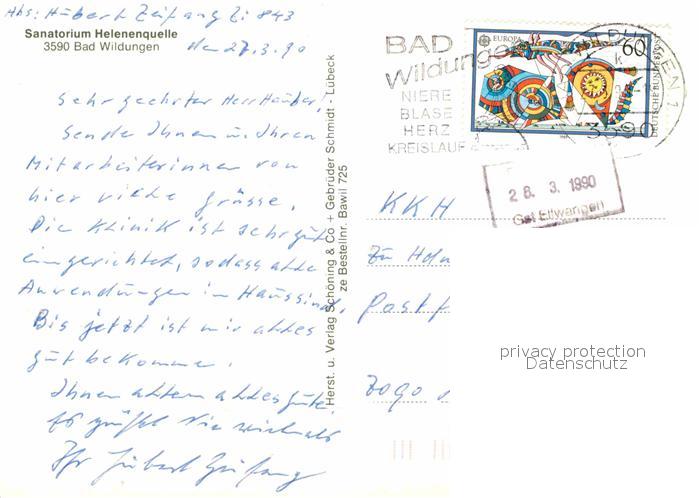 Abs: Hubert Zeifang Zi 843
Sanatorium Helenenquelle
3590 Bad Wildungen
den 27.3.90
Sehr geehrter Herr Hauber,
Sende Ihnen u. Ihren
Mitarbeiterinnen von
hier viele Grüsse.
Die Klinik ist sehr gut
eingerichtet, sodass alle
Anwendungen im Haus sind,
Bis jetzt ist mir alles
gut bekommen.
Ihnen allen alles Gute.
Es grüßt Sie
Ihr Hubert Zeifang
Herst. u. Verlag Schöning & Co + Gebrüder Schmidt - Lübeck
ze Bestellnr. Bawil 725
BAD
Wildungen
NIERE
BLASE
HERZ
KREISLAUF
EUROPA
60
DEUTSCHE BUNDESPOST
WILDUNGEN 1
3590
28. 3. 1990
Gst Ellwangen
KKH
Zu Hdn
Postf
7090
privacy protection
Datenschutz